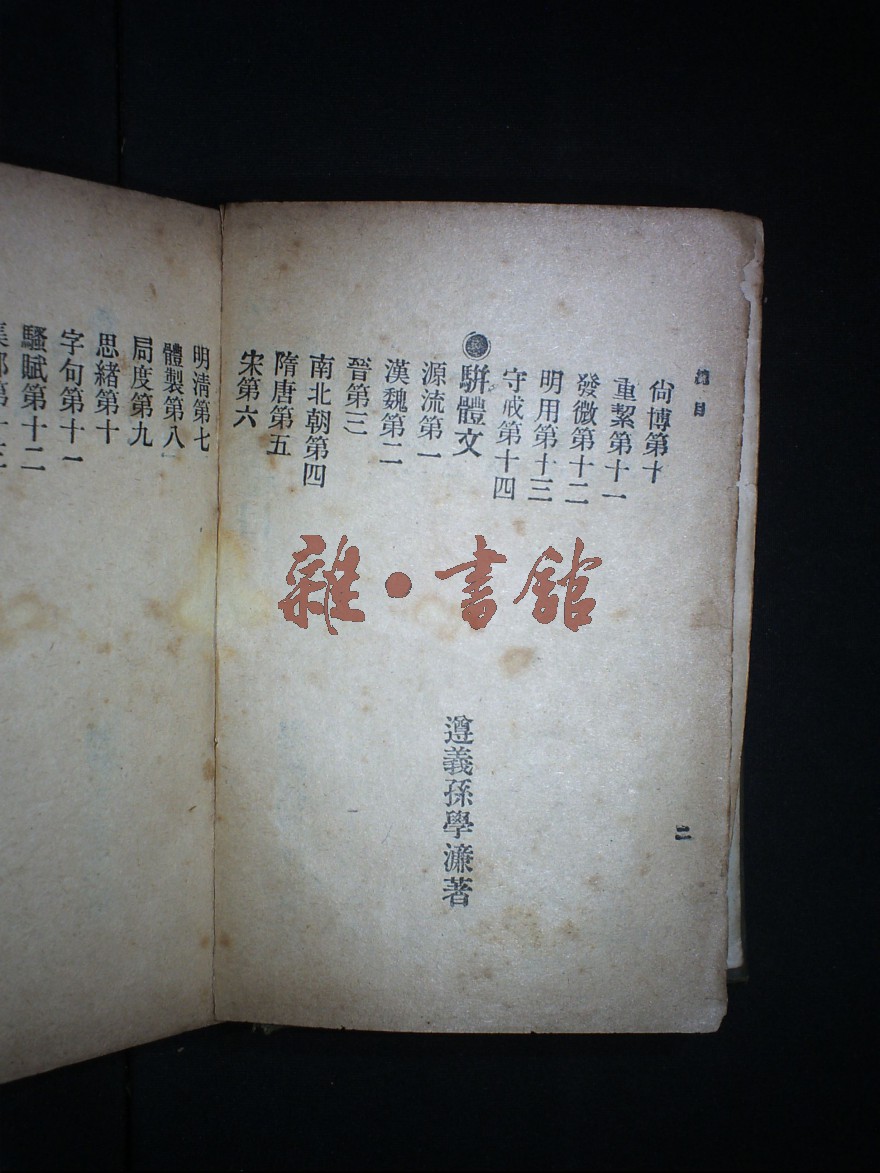 總目
二
尙博第十
重絜第十一
發微第十二
明用第十三
守戒第十四
駢體文
遵義孫學濂著
源流第一
漢魏第二
晉第三
南北朝第四
隋唐第五
宋第六
明淸第七
體製第八
局度第九
思緒第十
字句第十一
騷賦第十二
雜•書館